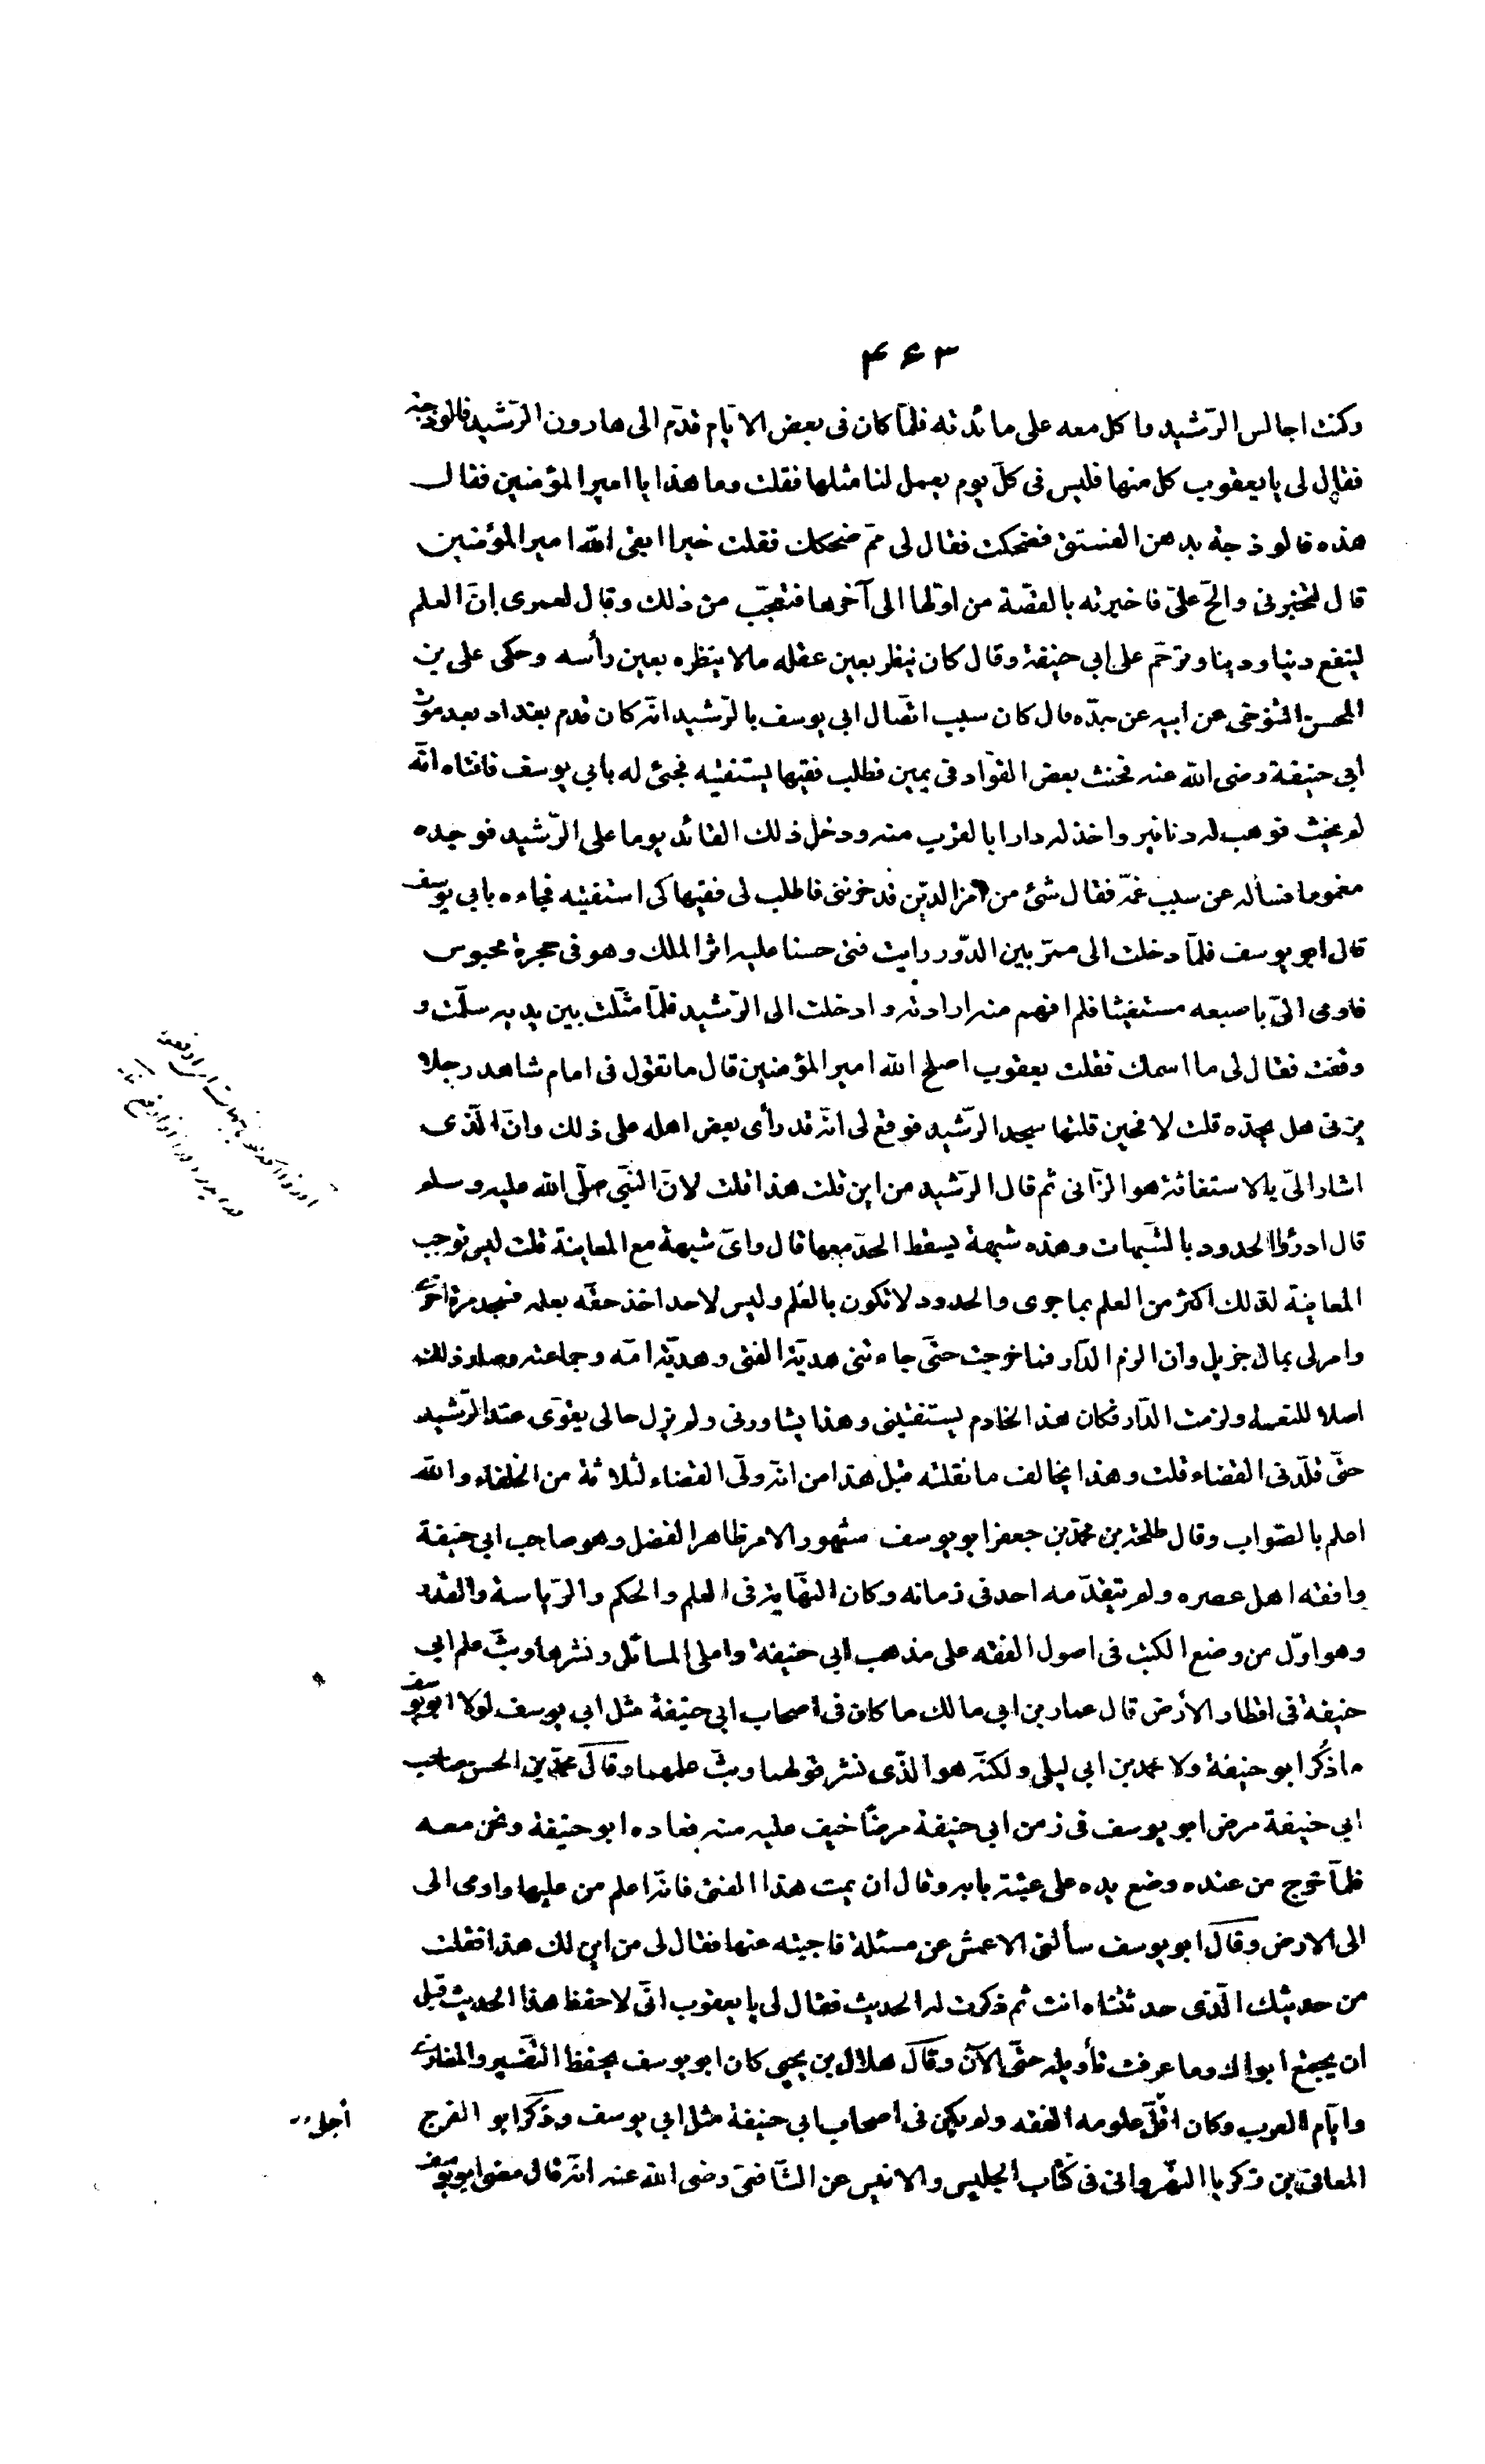 ۴۶۳
وكنت اجالس الرّشيد وآكل معه على مائدته فلمّا كان فى بعض الايّام قدّم الى هارون الرّشيد فالوذجة
فقال لى يا يعقوب كل منها فليس فى كلّ يوم يعمل لنا مثلها فقلت وما هذا يا امير المؤمنين فقال
هذه فالوذجة بدهن الفستق فضحكت فقال لى ممّ ضحكك فقلت خيرا ابقى الله امير المؤمنين
قال لتخبرنى والحّ علىّ فاخبرته بالقصّة من اوّلها الى آخرها فتعجّب من ذلك وقال لعمرى انّ العلم
لينفع دنيا ودينا وترحّم على ابي حنيفة وقال كان ينظر بعين عقله مالا ينظره بعين رأسه وحكى على بن
المحسن التنوخى عن ابيه عن جدّه قال كان سبب اتّصال ابى يوسف بالرّشيد انّه كان قدم بغداد بعد موت
ابى حنيفة رضى الله عنه فحنث بعض القوّاد فى يمين فطلب فقيها يستفتيه فجئ له بابي يوسف فافتاه انّه
لم يحنث فوهب له دنانير واخذ له دارا بالقرب منه ودخل ذلك القائد يوما على الرّشيد فوجده
مغموما فسأله عن سبب غمّه فقال شئ من امر الدين قد حزننى فاطلب لى فقيها كى استفتيه فجاءه بابي يوسف
قال ابو يوسف فلمّا دخلت الى ممرّ بين الدّور رايت فتى حسنا عليه اثر الملك وهو فى حجرة محبوس
فاومى الىّ باصبعه مستغيثا فلم افهم منه ارادته وادخلت الى الرّشيد فلمّا مثلت بين يديه سلّمت و
وقفت فقال لى ما اسمك فقلت يعقوب اصلح الله امير المؤمنين قال ما تقول فى امام شاهد رجلا
يزنى هل يحدّه قلت لا فحين قلتها سجد الرّشيد فوقع لى انّه قد رأى بعض اهله على ذلك وانّ الّذى
اشار الىّ بالاستغاثة هو الزّانى ثم قال الرّشيد من اين قلت هذا قلت لانّ النّبى صلّى الله عليه وسلم
قال ادرؤا الحدود بالشّبهات وهذه شبهة يسقط الحدّ معها قال واىّ شبهة مع المعاينة قلت ليس توجب
المعاينة لذلك اكثر من العلم بما جرى والحدود لا تكون بالعلم وليس لاحد اخذ حقّه بعلمه فسجد مرة اخرى
وامر لى بمال جزيل وان الزم الدّار فما خرجت حتّى جاءتنى هديّة الفتى وهديّة امّه وجماعته وصار ذلك
اصلا للنعمة ولزمت الدّار فكان هذا الخادم يستفتينى وهذا يشاورنى ولم يزل حالى يقوى عند الرّشيد
حتّى قلّدنى القضاء قلت وهذا يخالف ما نقلته قبل هذا من انّه ولّى القضاء لثلاثة من الخلفاء والله
اعلم بالصّواب وقال طلحة بن محمّد بن جعفر ابو يوسف مشهور الامر ظاهر الفضل وهو صاحب ابى حنيفة
وافقه اهل عصره ولم يتقدّمه احد فى زمانه وكان النّهاية فى العلم والحكم والرّياسة والقدر
وهو اوّل من وضع الكتب فى اصول الفقه على مذهب ابى حنيفة واملى المسائل ونشرها وبثّ علم ابى
حنيفة فى اقطار الأرض قال عمار بن ابى مالك ما كان فى اصحاب ابى حنيفة مثل ابى يوسف لولا ابو يوسف
ما ذُكر ابو حنيفة ولا محمد بن ابى ليلى ولكنّه هو الّذى نشر قولهما وبثّ علمهما وقال محمّد بن الحسن صاحب
ابى حنيفة مرض ابو يوسف فى زمن ابى حنيفة مرضًا خيف عليه منه فعاده ابو حنيفة ونحن معه
فلمّا خرج من عنده وضع يده على عتبة بابه وقال ان يمت هذا الفتى فانّه اعلم من عليها واومى الى
الى الارض وقال ابو يوسف سألنى الاعمش عن مسئلة فاجبته عنها فقال لى من اين لك هذا فقلت
من حديثك الّذى حدثتناه انت ثم ذكرت له الحديث فقال لى يا يعقوب انّى لاحفظ هذا الحديث قبل
ان يجتمع ابواك وما عرفت تأويله حتّى الآن وقال هلال بن يحيى كان ابو يوسف يحفظ التّفسير والمغازى
وايّام العرب وكان اقلّ علومه الفقه ولم يكن فى اصحاب ابى حنيفة مثل ابى يوسف وذكر ابو الفرج
أجل
المعافى بن زكريا النّهروانى فى كتاب الجليس والانيس عن الشّافعى رضى الله عنه انّه قال مضى ابو يوسف